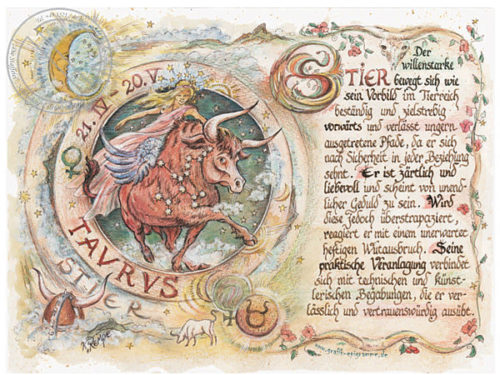 21. IV 20. V
TAVRVS
STIER
Der
willensstarke
STIER bewegt sich wie
sein Vorbild im Tierreich
beständig und zielstrebig
vorwärts und verlässt ungern
ausgetretene Pfade, da er sich
nach Sicherheit in jeder Beziehung
sehnt. Er ist zärtlich und
liebevoll und scheint von unend-
licher Geduld zu sein. Wird
diese jedoch überstrapaziert,
reagiert er mit einem unerwartet
heftigen Wutausbruch. Seine
praktische Veranlagung verbindet
sich mit technischen und künst-
lerischen Begabungen, die er ver-
lässlich und vertrauenswürdig ausübt.